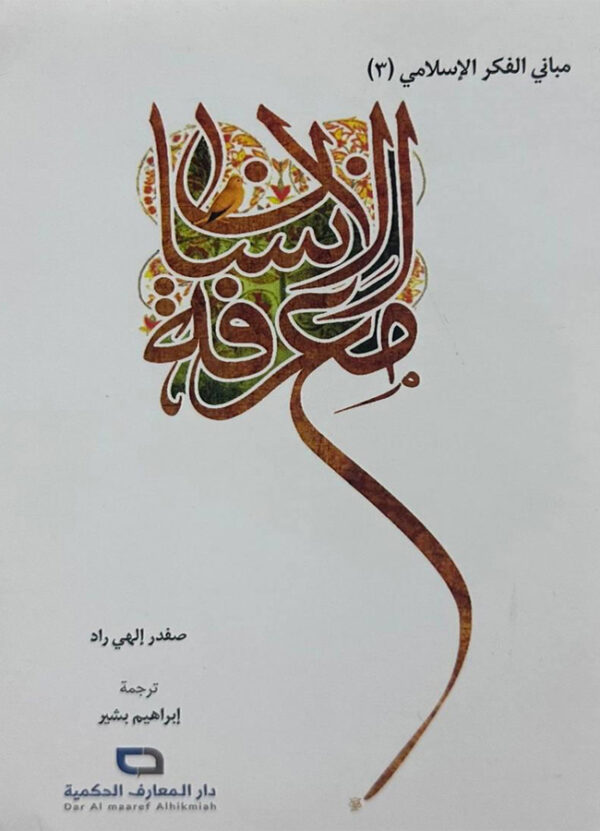 مباني الفكر الإسلامي (٣)
معرفة
الإنسان
صفدر إلهي راد
ترجمة
إبراهيم بشير
دار المعارف الحكمية
Dar Al maaref Alhikmiah